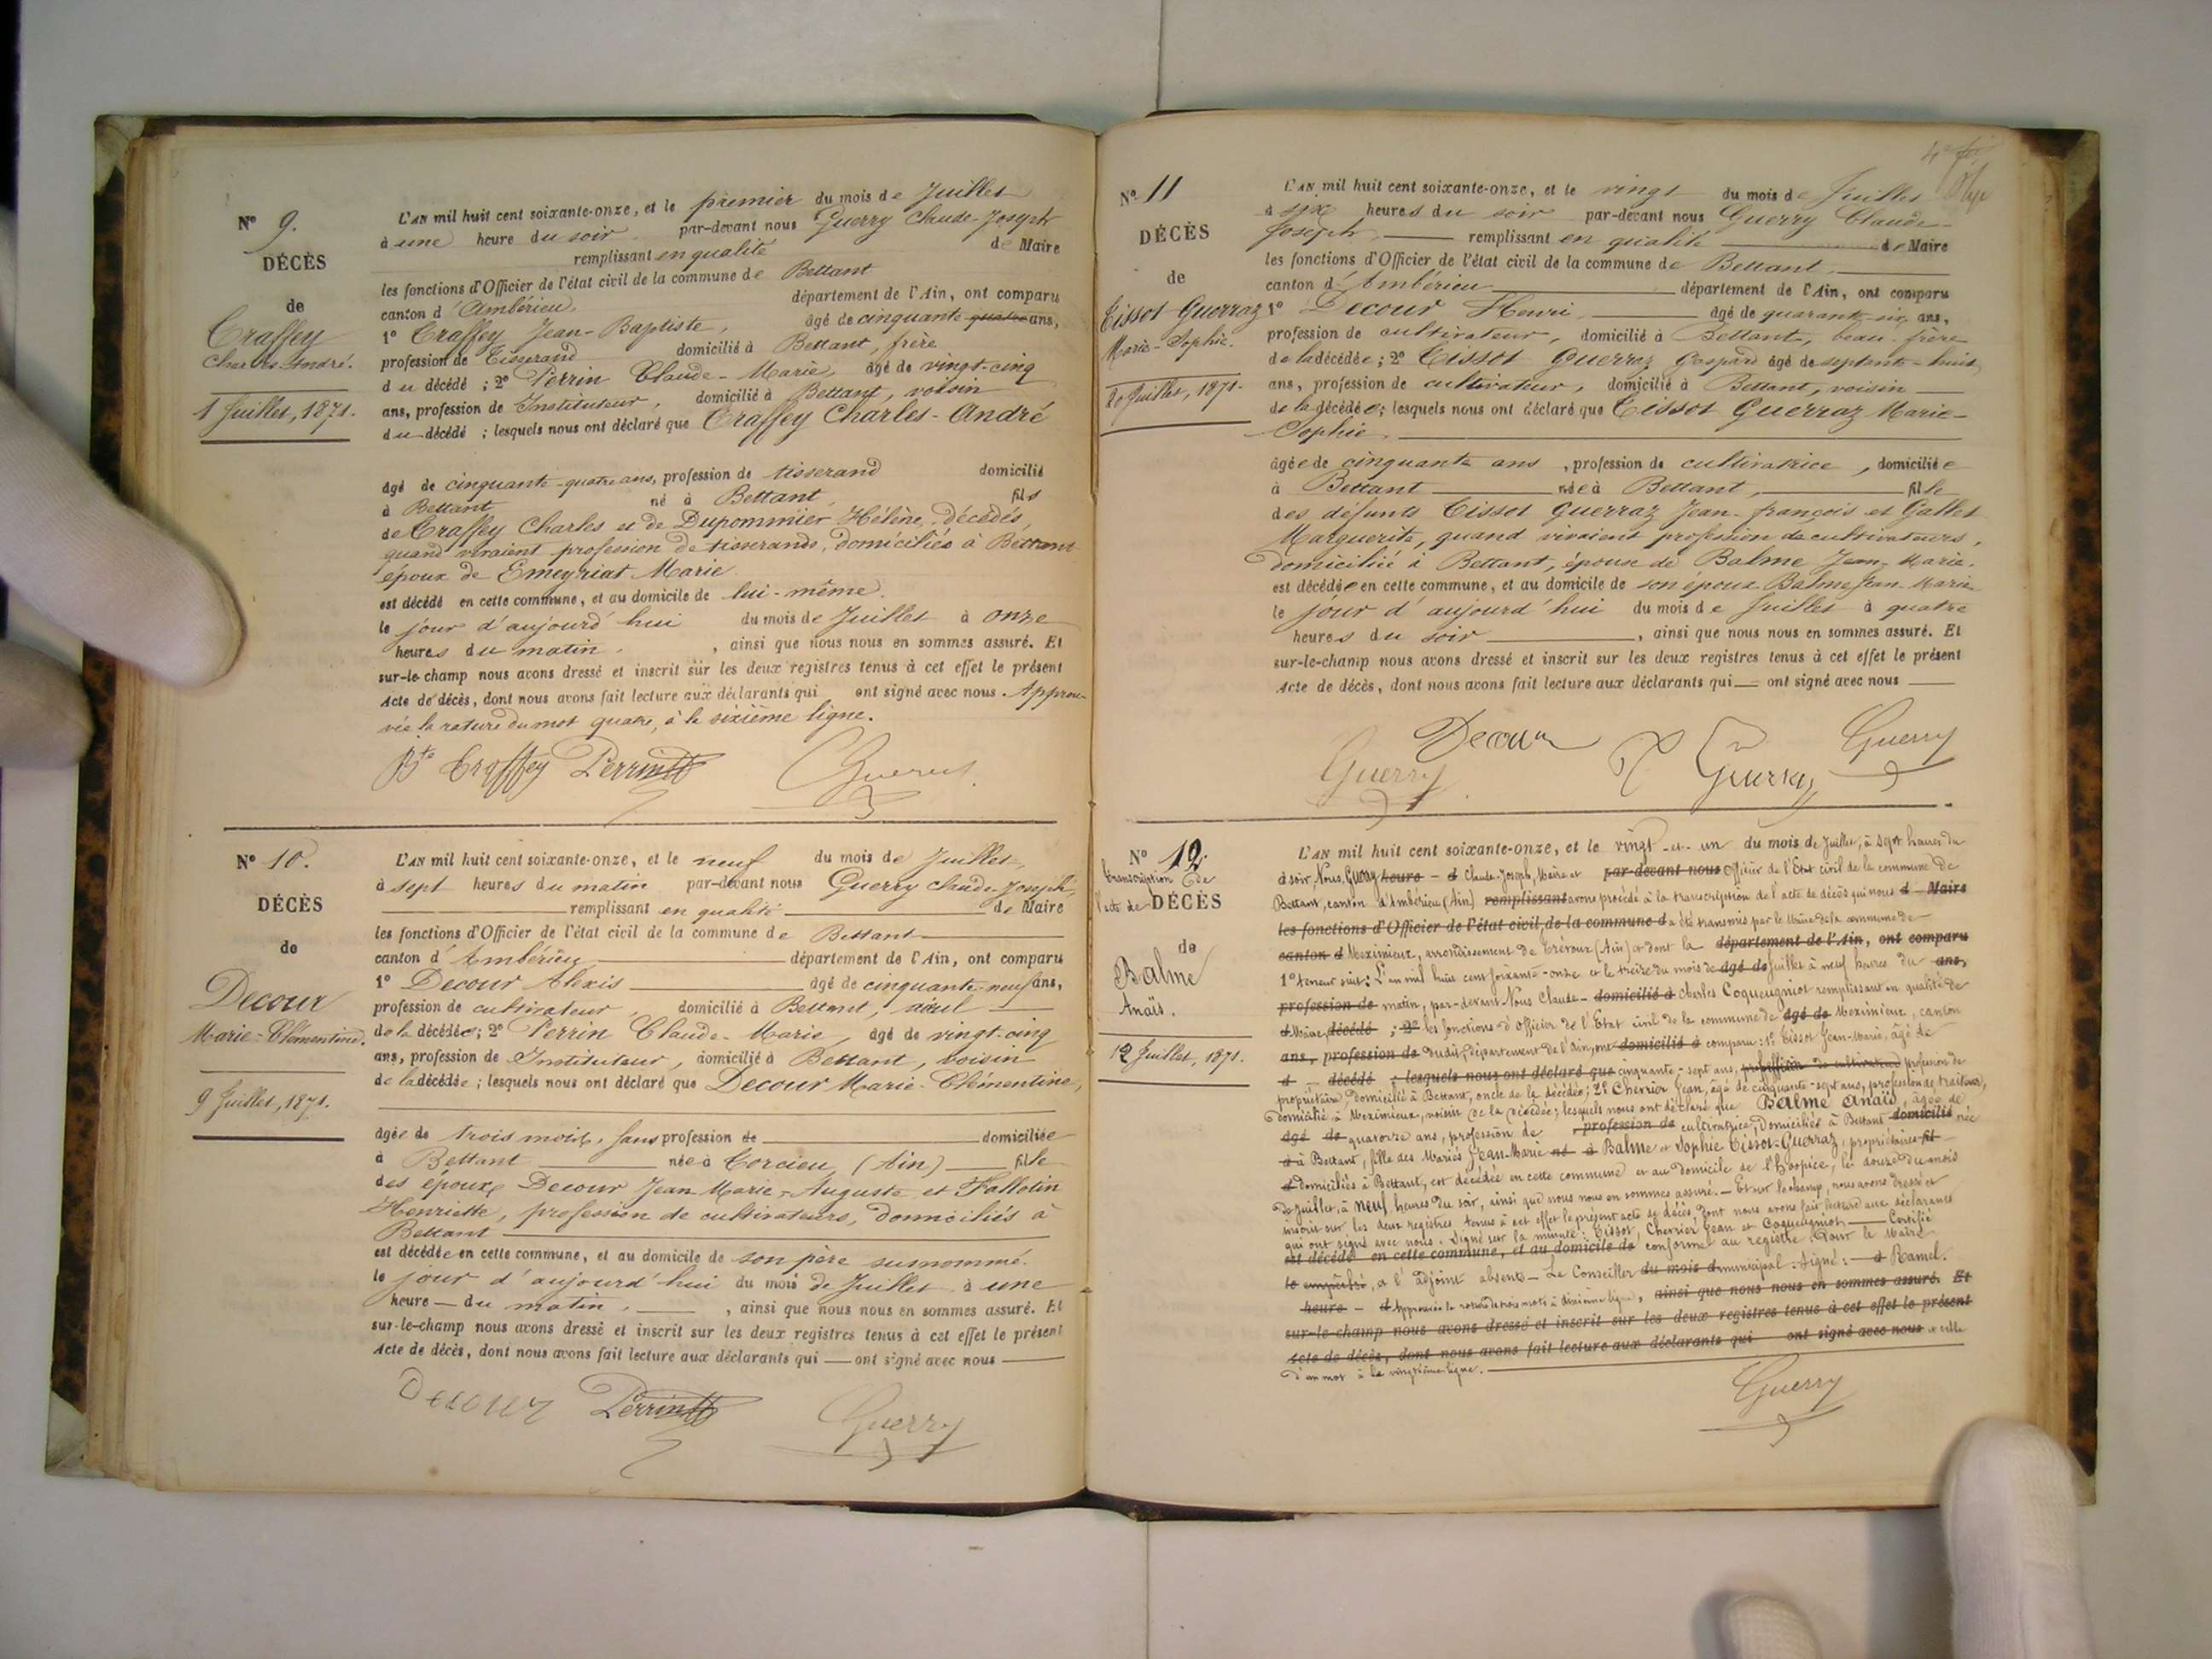 Nº 9.
DÉCÈS
de
Craffey
Charles-André.
1 Juillet, 1871.
L'AN mil huit cent soixante-onze, et le premier du mois de Juillet
à une heure du soir par-devant nous Guerry Claude-Joseph
remplissant en qualité de Maire
les fonctions d'Officier de l'état civil de la commune de Bettant
canton d'Ambérieu, département de l'Ain, ont comparu
1º Craffey Jean-Baptiste, âgé de cinquante quatre ans,
profession de Tisserand domicilié à Bettant, frère
du décédé ; 2º Perrin Claude-Marie, âgé de vingt-cinq
ans, profession de Instituteur, domicilié à Bettant, voisin
du décédé ; lesquels nous ont déclaré que Craffey Charles-André
âgé de cinquante-quatre ans, profession de tisserand domicilié
à Bettant né à Bettant, fils
de Craffey Charles et de Dupommier Hélène, décédés,
quand vivaient profession de tisserands, domiciliés à Bettant
époux de Emeyriat Marie.
est décédé en cette commune, et au domicile de lui-même.
le jour d'aujourd'hui du mois de Juillet à onze
heures du matin, , ainsi que nous nous en sommes assuré. Et
sur-le-champ nous avons dressé et inscrit sur les deux registres tenus à cet effet le présent
Acte de décès, dont nous avons fait lecture aux déclarants qui ont signé avec nous. Approu-
vée la rature du mot quatre, à la sixième ligne.
Bte Craffey Perrin Guerry
Nº 10.
DÉCÈS
de
Decour
Marie-Clémentine.
9 Juillet, 1871.
L'AN mil huit cent soixante-onze, et le neuf du mois de Juillet,
à sept heures du matin par-devant nous Guerry Claude-Joseph,
remplissant en qualité de Maire
les fonctions d'Officier de l'état civil de la commune de Bettant
canton d'Ambérieu département de l'Ain, ont comparu
1º Decour Alexis âgé de cinquante-neuf ans,
profession de cultivateur, domicilié à Bettant, aïeul
de la décédée ; 2º Perrin Claude-Marie, âgé de vingt-cinq
ans, profession de Instituteur, domicilié à Bettant, voisin
de la décédée ; lesquels nous ont déclaré que Decour Marie-Clémentine,
âgée de trois mois, sans profession de domiciliée
à Bettant née à Corcieu, (Ain) fille
des époux Decour Jean Marie-Auguste et Fallotin
Henriette, profession de cultivateurs, domiciliés à
Bettant
est décédée en cette commune, et au domicile de son père susnommé.
le jour d'aujourd'hui du mois de Juillet à une
heure du matin, , ainsi que nous nous en sommes assuré. Et
sur-le-champ nous avons dressé et inscrit sur les deux registres tenus à cet effet le présent
Acte de décès, dont nous avons fait lecture aux déclarants qui ont signé avec nous
Decour Perrin Guerry
Nº 11
DÉCÈS
de
Tissot Guerraz
Marie-Sophie.
20 Juillet, 1871.
L'AN mil huit cent soixante-onze, et le vingt du mois de Juillet
à six heures du soir par-devant nous Guerry Claude-
Joseph, remplissant en qualité de Maire
les fonctions d'Officier de l'état civil de la commune de Bettant,
canton d'Ambérieu département de l'Ain, ont comparu
1º Decour Henri, âgé de quarante-six ans,
profession de cultivateur, domicilié à Bettant, beau-frère
de la décédée ; 2º Tissot Guerraz Gaspard âgé de septante-huit
ans, profession de cultivateur, domicilié à Bettant, voisin
de la décédée ; lesquels nous ont déclaré que Tissot Guerraz Marie-
Sophie,
âgée de cinquante ans, profession de cultivatrice, domiciliée
à Bettant née à Bettant, fille
des défunts Tissot Guerraz Jean-françois et Gallet
Marguerite, quand vivaient profession de cultivateurs,
domiciliée à Bettant, épouse de Balme Jean-Marie.
est décédée en cette commune, et au domicile de son époux Balme Jean-Marie
le jour d'aujourd'hui du mois de Juillet à quatre
heures du soir , ainsi que nous nous en sommes assuré. Et
sur-le-champ nous avons dressé et inscrit sur les deux registres tenus à cet effet le présent
Acte de décès, dont nous avons fait lecture aux déclarants qui ont signé avec nous
Decour Guerry
Guerry
Nº 12.
transcription de
l'acte de DÉCÈS
de
Balme
Anaïs.
12 Juillet, 1871.
L'AN mil huit cent soixante-onze, et le vingt-et-un du mois de Juillet, à sept heures du
à soir, Nous, Guerry heure - d Claude-Joseph, Maire et par-devant nous Officier de l'Etat civil de la commune de
Bettant, canton d'Ambérieu (Ain) remplissant avons procédé à la transcription de l'acte de décès qui nous d Maire
les fonctions d'Officier de l'état civil de la commune d a été transmis par le Maire de la commune de
canton d Meximieux, arrondissement de Trévoux (Ain) et dont la département de l'Ain, ont comparu
1º teneur suit : L'an mil huit cent soixante-onze et le treize du mois de âgé de Juillet à neuf heures du ans,
profession de matin, par-devant Nous Claude- domicilié à Charles Coqueugniot remplissant en qualité de
d Maire, décédé ; 2º les fonctions d'Officier de l'Etat civil de la commune de âgé de Meximieux, canton
ans, profession de dudit, département de l'Ain, ont domicilié à comparu : 1º Tissot Jean-Marie, âgé de
d décédé ; lesquels nous ont déclaré que cinquante-sept ans, profession de cultivateur profession de
propriétaire, domicilié à Bettant, oncle de la décédée ; 2º Cherrier Jean, âgé de cinquante-sept ans, profession de traiteur,
domicilié à Meximieux, voisin de la décédée ; lesquels nous ont déclaré que Balme Anaïs, âgée de
âgé de quatorze ans, profession de profession de cultivatrice, domiciliée à Bettant domicilié née
à à Bettant, fille des Mariés Jean-Marie né à Balme et Sophie Tissot-Guerraz, propriétaires fil
d domiciliés à Bettant, est décédée en cette commune et au domicile de l'hospice, le douze du mois
de Juillet, à neuf heures du soir, ainsi que nous nous en sommes assuré. - Et sur le champ, nous avons dressé et
inscrit sur les deux registres tenus à cet effet le présent acte de décès, dont nous avons fait lecture aux déclarants
qui ont signé avec nous. Signé sur la minute : Tissot, Cherrier Jean et Coqueugniot. Certifié
est décédé en cette commune, et au domicile de conforme au registre. Pour le Maire
le empêché, et l'adjoint absents - Le Conseiller du mois d municipal. Signé : - à Ramel.
heure - d Approuvée la rature de trois mots à dixième ligne, ainsi que nous nous en sommes assuré. Et
sur-le-champ nous avons dressé et inscrit sur les deux registres tenus à cet effet le présent
Acte de décès, dont nous avons fait lecture aux déclarants qui ont signé avec nous et celle
d'un mot à la vingtième ligne.
Guerry